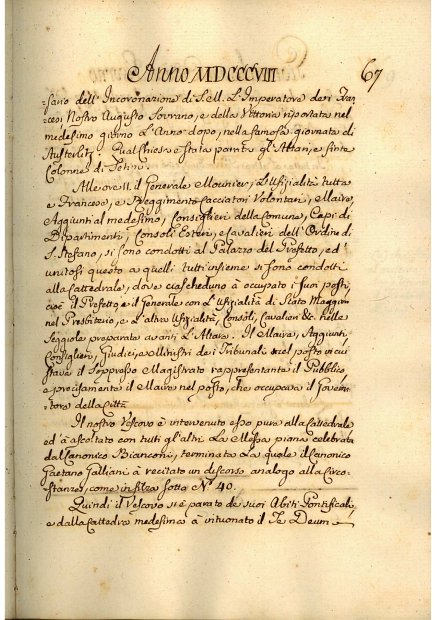 Anno MDCCCVIII
67
=sario dell' Incoronazione di S. M. L'Imperatore dei Fran=
=cesi Nostro Augusto Sovrano, e della Vittoria riportata nel
medesimo giorno L'Anno dopo, nella famosa giornata di
Austerlitz. Qual Chiesa è stata parata gl'Altari, e finte
Colonne di Setino.
Alle ore 11. il Generale Mounier, L'Ufizialità tutta
e Francese, e Reggimento Cacciatori Volontari, Maire,
Aggiunti al medesimo, Consiglieri della Comune, Capi di
Dipartimenti, Consoli Esteri, e Cavalieri dell'Ordine di
S. Stefano, si sono condotti al Palazzo del Prefetto, ed
unitosi questo a quelli tutti insieme si sono condotti
alla Cattedrale, dove ciascheduno à occupato i suoi posti,
cioè il Prefetto, e il Generale con L'Ufizialità di Stato Maggiore
nel Presbiterio, e L'altra Ufizialità, Consoli, Cavalieri &c. nelle
Seggiole preparate avanti L'Altare. Il Maire, Aggiunti,
Consiglieri, Giudici, e Ministri dei Tribunali nel posto in cui
stava il soppresso Magistrato rappresentante il Pubblico,
e precisamente il Maire nel posto, che occupava il Gover=
natore della Città
Il nostro Vescovo è intervenuto esso pure alla Cattedrale
ed à ascoltato con tutti gl'altri La Messa piana celebrata
dal Canonico Bianconi, terminata La quale il Canonico
Gaetano Galliani à recitato un discorso analogo alla Circo=
=stanza, come in filza sotto N.° 40.
Quindi il Vescovo si è parato de suoi Abiti Pontificali,
e dalla Cattedra medesima à intuonato il Te Deum